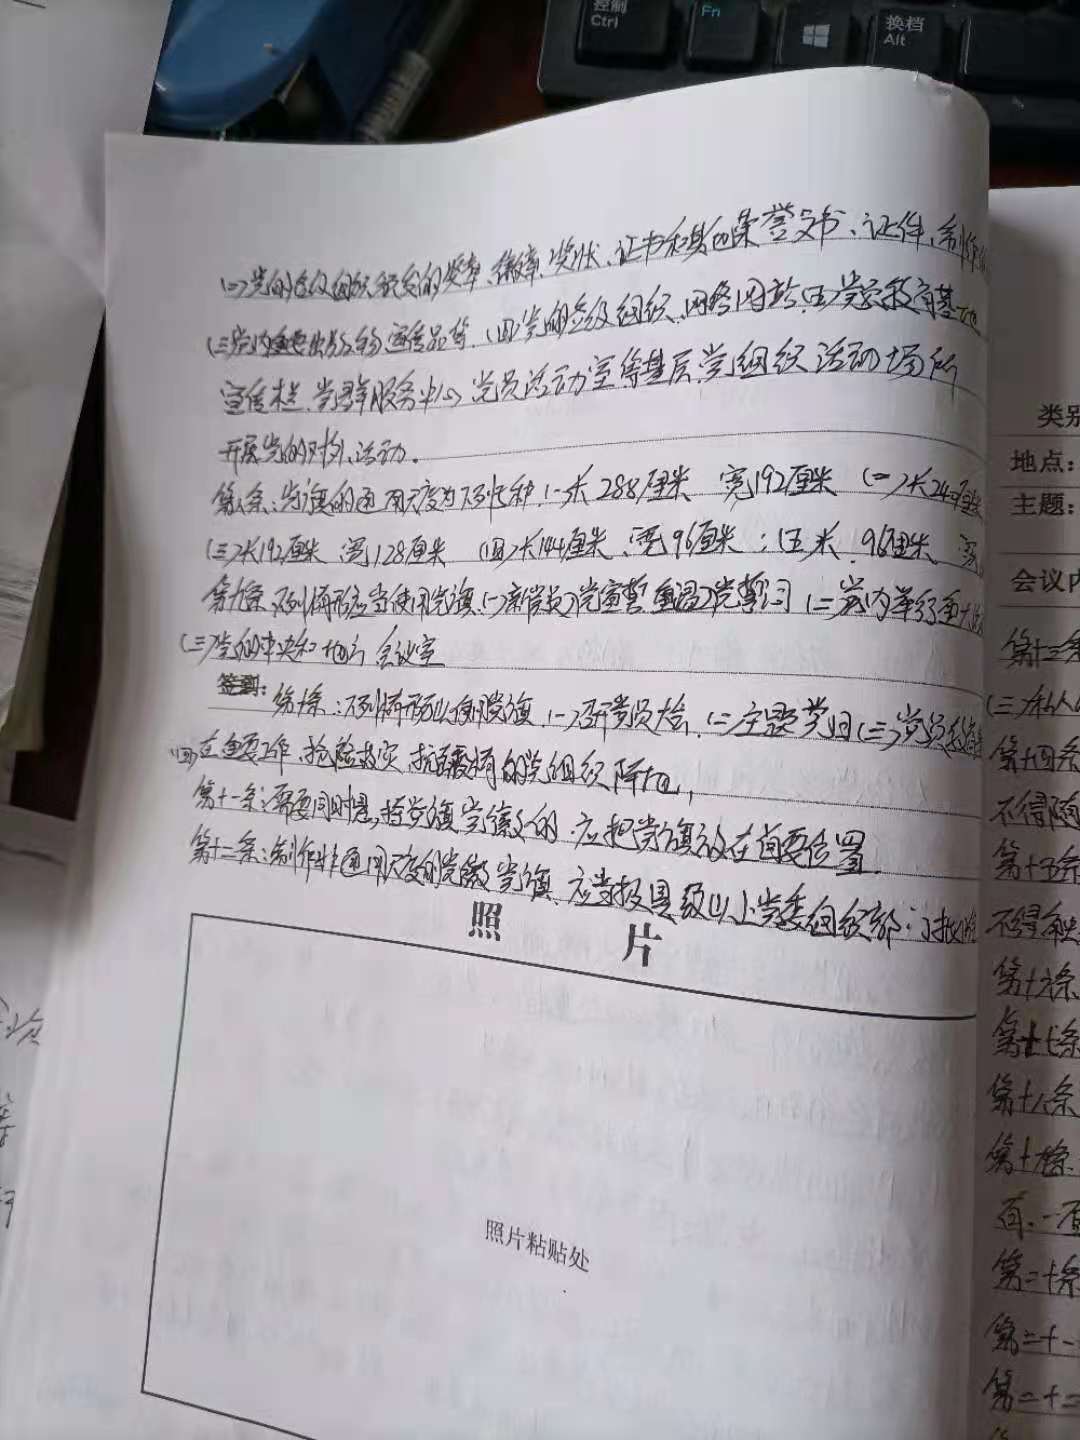 控制
Ctrl
Fn
换档
Alt
(二)党的各级组织颁发的奖章、徽章、奖状、证书和其他荣誉文书、证件、制作
(三)党内重要出版物、宣传品等.(四)党的各级组织.网络网站.(五)党员教育基地
宣传栏.党群服务中心 党员活动室等基层党组织活动场所
开展党的对外活动.
第八条:党旗的通用尺度为下列 种(一)长288厘米 宽192厘米 (二)长240厘米
(三)长192厘米 宽128厘米 (四)长144厘米、宽96厘米;(五 米 96厘米 宽
第九条 下列情形应当使用党旗.(一)新党员入党宣誓 重温入党誓词 (二)党内举行重大
(三)党的中央和地方会议室
签到:
第十条:下列情形可以使用党旗.(一)召开党员大会,(二)主题党日(三)党员
(四)在重要工作、抢险救灾、 的党组织阵地,
第十一条:需要同时悬,持党旗党徽的.应把党旗放在首要位置.
第十二条:制作非通用尺度的党徽党旗.应当报县级以上党委组织部门批准
照片
照片粘贴处
类别
地点:
主题:
会议内
第十三条
(三)私人
第十四条
不得随
第十五条
不得
第十六条
第十七条
第十八条
第十九条
第二十条
第二十一
第二十二